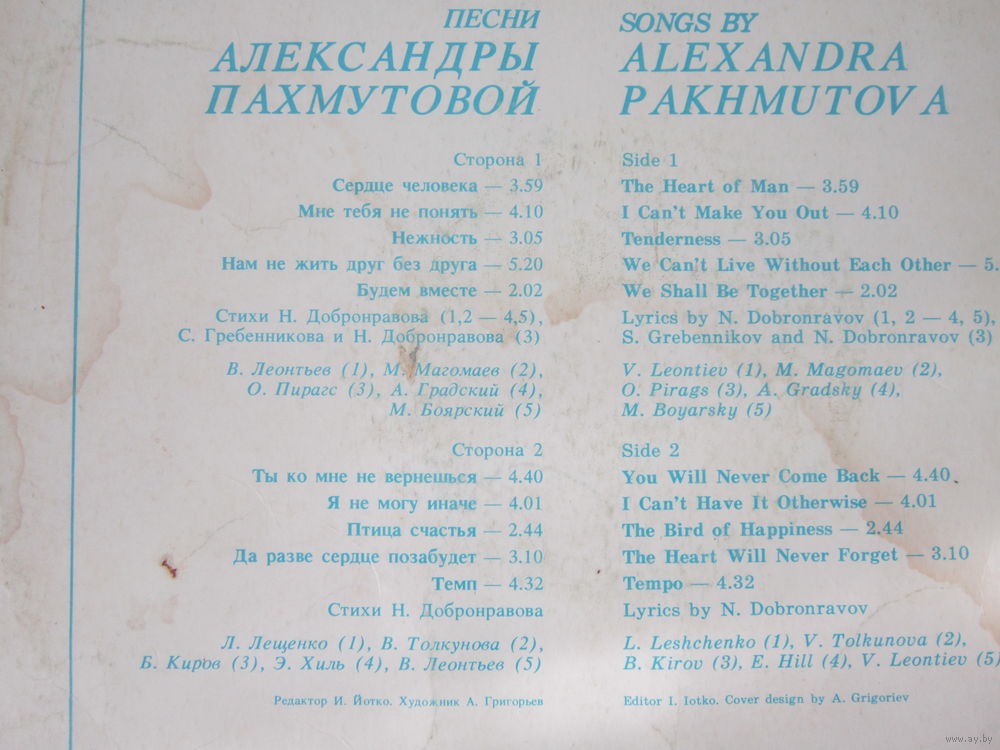 ПЕСНИ
АЛЕКСАНДРЫ
ПАХМУТОВОЙ
Сторона 1
Сердце человека — 3.59
Мне тебя не понять — 4.10
Нежность — 3.05
Нам не жить друг без друга — 5.20
Будем вместе — 2.02
Стихи Н. Добронравова (1,2 — 4,5),
С. Гребенникова и Н. Добронравова (3)
В. Леонтьев (1), М. Магомаев (2),
О. Пирагс (3), А. Градский (4),
М. Боярский (5)
Сторона 2
Ты ко мне не вернешься — 4.40
Я не могу иначе — 4.01
Птица счастья — 2.44
Да разве сердце позабудет — 3.10
Темп — 4.32
Стихи Н. Добронравова
Л. Лещенко (1), В. Толкунова (2),
Б. Киров (3), Э. Хиль (4), В. Леонтьев (5)
Редактор И. Йотко. Художник А. Григорьев
SONGS BY
ALEXANDRA
PAKHMUTOVA
Side 1
The Heart of Man — 3.59
I Can't Make You Out — 4.10
Tenderness — 3.05
We Can't Live Without Each Other — 5.
We Shall Be Together — 2.02
Lyrics by N. Dobronravov (1, 2 — 4, 5),
S. Grebennikov and N. Dobronravov (3)
V. Leontiev (1), M. Magomaev (2),
O. Pirags (3), A. Gradsky (4),
M. Boyarsky (5)
Side 2
You Will Never Come Back — 4.40
I Can't Have It Otherwise — 4.01
The Bird of Happiness — 2.44
The Heart Will Never Forget — 3.10
Tempo — 4.32
Lyrics by N. Dobronravov
L. Leshchenko (1), V. Tolkunova (2),
B. Kirov (3), E. Hill (4), V. Leontiev (5)
Editor I. Iotko. Cover design by A. Grigoriev
www.ay.by